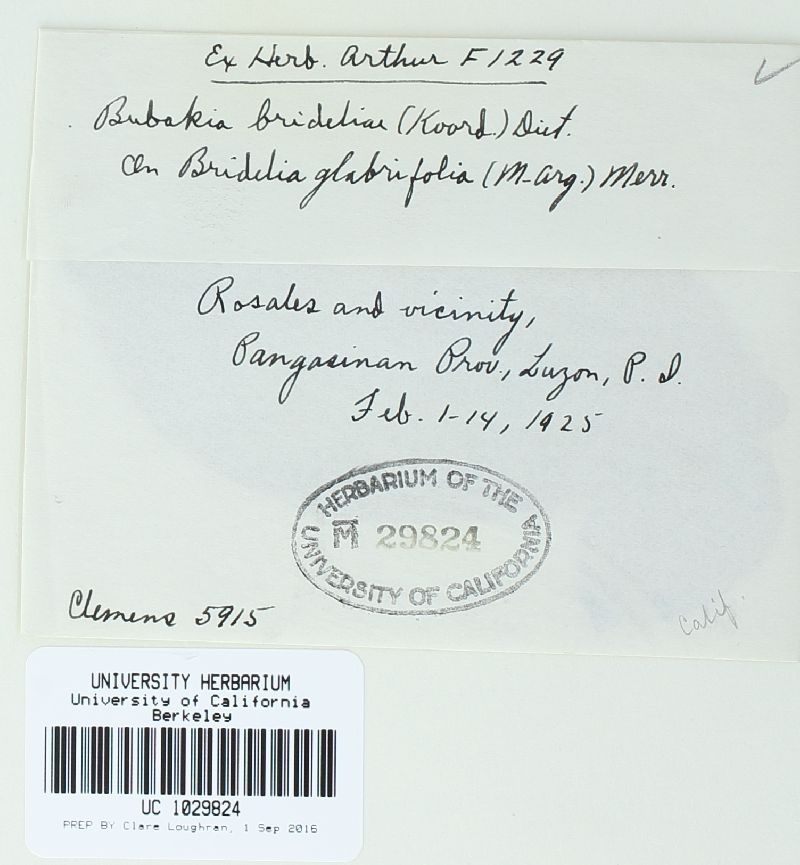 Ex Herb. Arthur F 1229
Bubakia brideliae (Koord.) Diet.
On Bridelia glabrifolia (M-Arg.) Merr.
Rosales and vicinity,
Pangasinan Prov., Luzon, P. I.
Feb. 1-14, 1925
HERBARIUM OF THE
M 29824
UNIVERSITY OF CALIFORNIA
Clemens 5915
Calif.
UNIVERSITY HERBARIUM
University of California
Berkeley
UC 1029824
PREP BY Clare Loughran, 1 Sep 2016